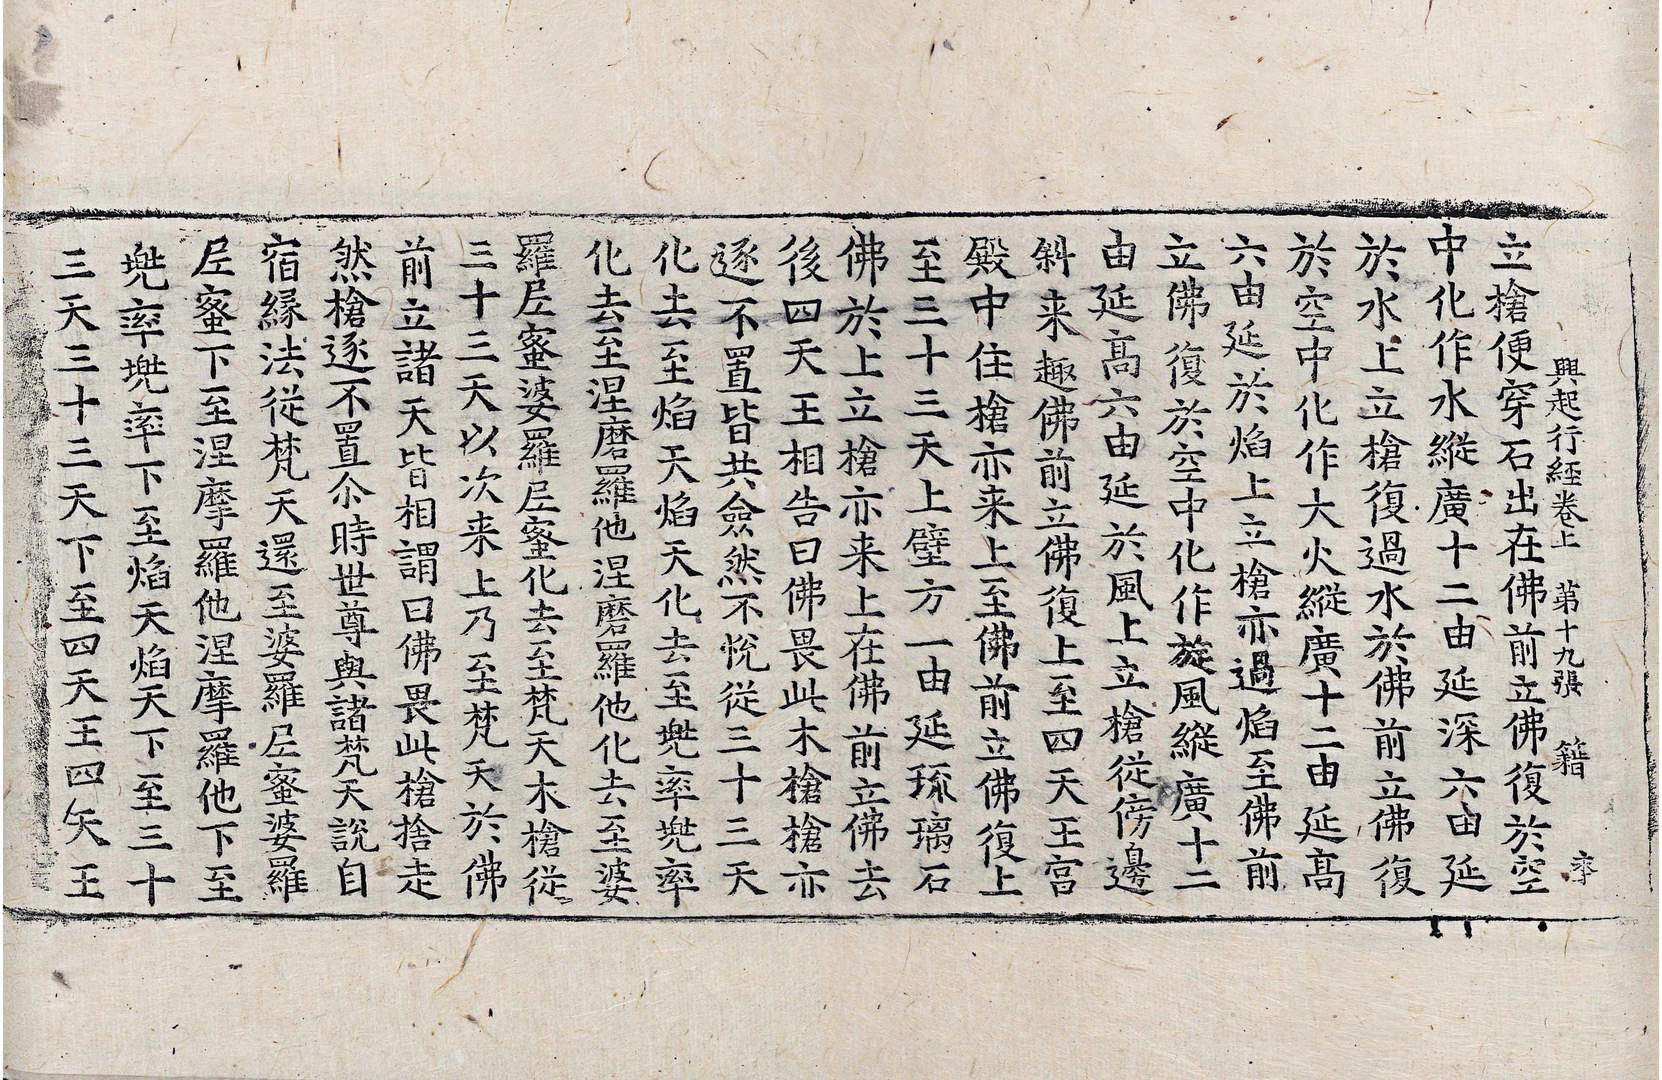 興起行經卷上 第十九張 籍
立槍便穿石出在佛前立佛復於空
中化作水縱廣十二由延深六由延
於水上立槍復過水於佛前立佛復
於空中化作大火縱廣十二由延高
六由延於焰上立槍亦過焰至佛前
立佛復於空中化作旋風縱廣十二
由延高六由延於風上立槍從傍邊
斜来趣佛前立佛復上至四天王宮
殿中住槍亦来上至佛前立佛復上
至三十三天上壁方一由延琉璃石
佛於上立槍亦来上在佛前立佛去
後四天王相告曰佛畏此木槍槍亦
逐不置皆共僉然不悅從三十三天
化去至焰天焰天化去至兠率兠率
化去至涅磨羅他涅磨羅他化去至婆
羅尼蜜婆羅尼蜜化去至梵天木槍從
三十三天以次来上乃至梵天於佛
前立諸天皆相謂曰佛畏此槍捨走
然槍逐不置尒時世尊與諸梵天說自
宿緣法從梵天還至婆羅尼蜜婆羅
尼蜜下至涅摩羅他涅摩羅他下至
兠率兠率下至焰天焰天下至三十
三天三十三天下至四天王四天王